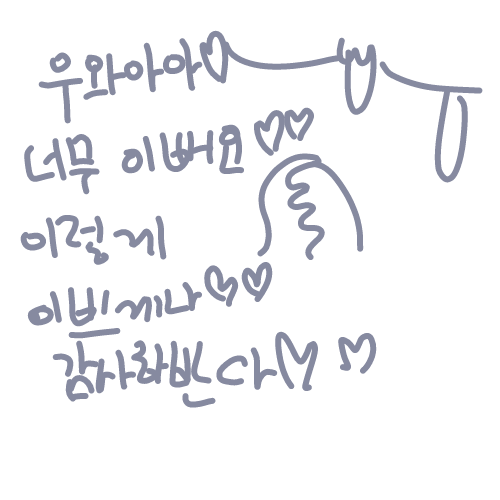 우와아아♡
너무 이뻐요♡♡
이렇게
이쁘게나♡♡
감사하빈다♡♡